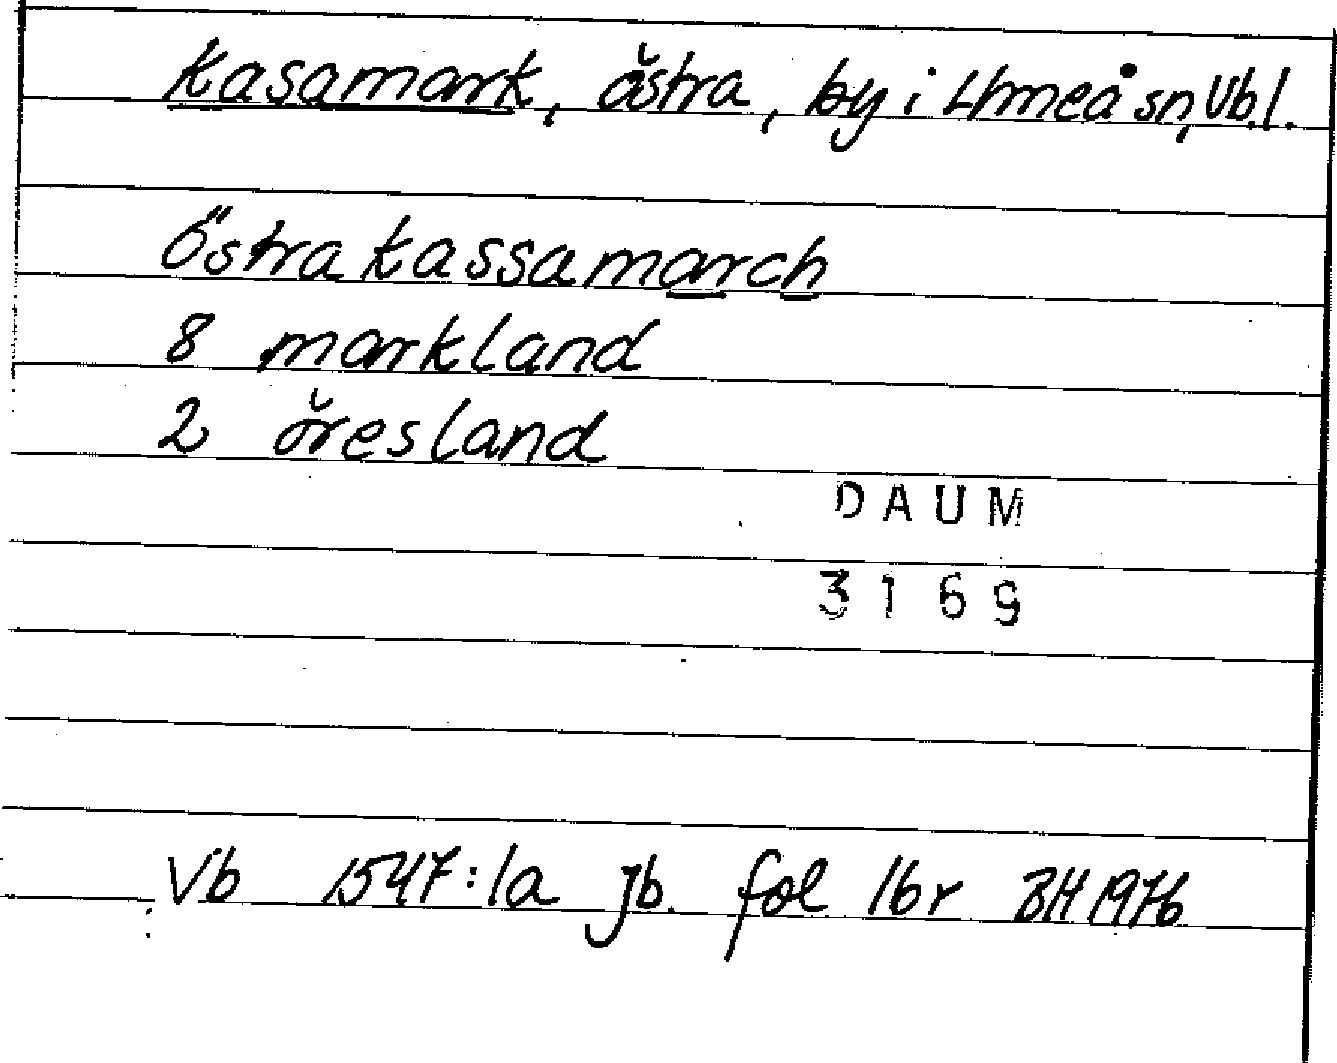 Kasamark, östra, by i Umeå sn, Vb.l.
Östra Kassamarch
8 markland
2 öresland
DAUM
3169
Vb 1547:1a Jb. fol 16r BH 1976